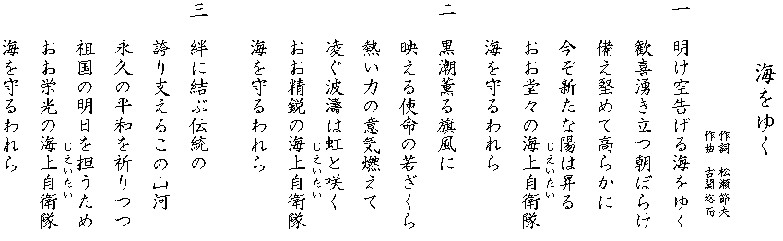 海をゆく
作詞　松瀬節夫
作曲　古関裕而
一　明け空告げる海をゆく
歓喜湧き立つ朝ぼらけ
備え堅めて高らかに
今ぞ新たな陽は昇る
おお堂々の海上自衛隊
じえいたい
海を守るわれら
二　黒潮薫る旗風に
映える使命の若ざくら
熱い力の意気燃えて
凌ぐ波濤は虹と咲く
おお精鋭の海上自衛隊
じえいたい
海を守るわれら
三　絆に結ぶ伝統の
誇り支えるこの山河
永久の平和を祈りつつ
祖国の明日を担うため
おお栄光の海上自衛隊
じえいたい
海を守るわれら